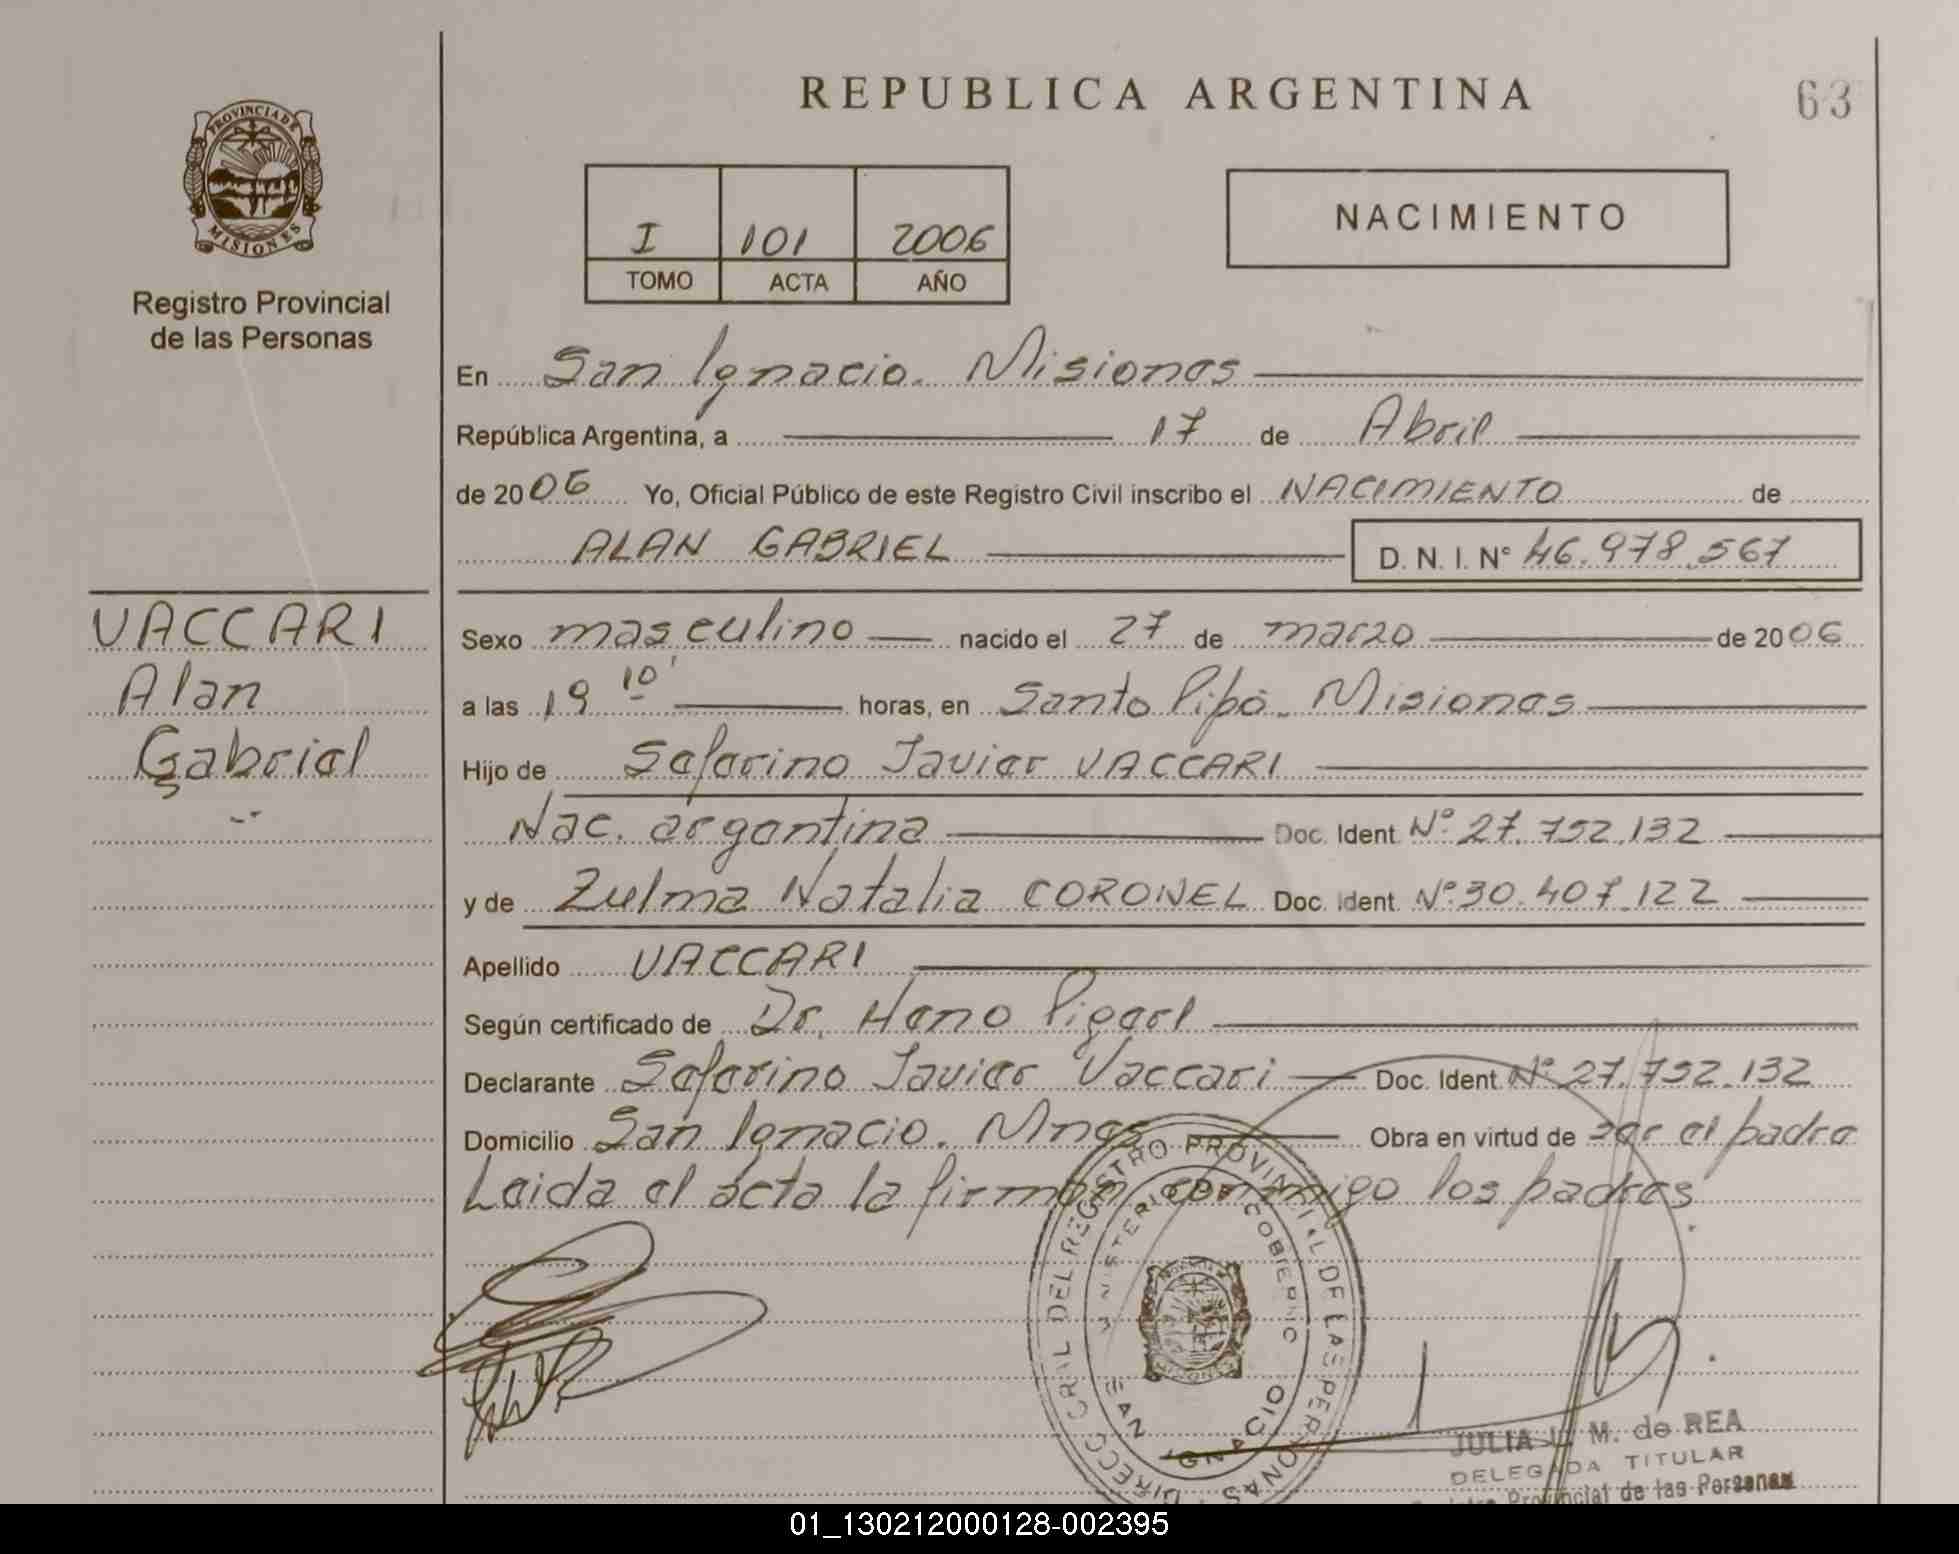 REPUBLICA ARGENTINA
63
PROVINCIA DE
MISIONES
Registro Provincial
de las Personas
I 101 2006
TOMO ACTA AÑO
NACIMIENTO
En San Ignacio. Misiones
República Argentina, a 17 de Abril
de 2006 Yo, Oficial Público de este Registro Civil inscribo el NACIMIENTO de
ALAN GABRIEL D. N. I. N° 46.978.567
VACCARI
Alan
Gabriel
Sexo masculino nacido el 27 de marzo de 2006
a las 19 10' horas, en Santo Pipó. Misiones
Hijo de Seferino Javier VACCARI
Nac. argentina Doc. Ident. Nº 27.752.132
y de Zulma Natalia CORONEL Doc. Ident. Nº 30.407.122
Apellido VACCARI
Según certificado de Dr. Heno Pigerl
Declarante Seferino Javier Vaccari Doc. Ident. Nº 27.752.132
Domicilio San Ignacio. Mnes Obra en virtud de ser el padre
Leida el acta la firman conmigo los padres
DIRECC GRAL DEL REGISTRO PROVINCIAL DE LAS PERSONAS
MINISTERIO DE GOBIERNO
SAN IGNACIO
JULIA M. de REA
DELEGADA TITULAR
Provincial de las Personas
01_130212000128-002395